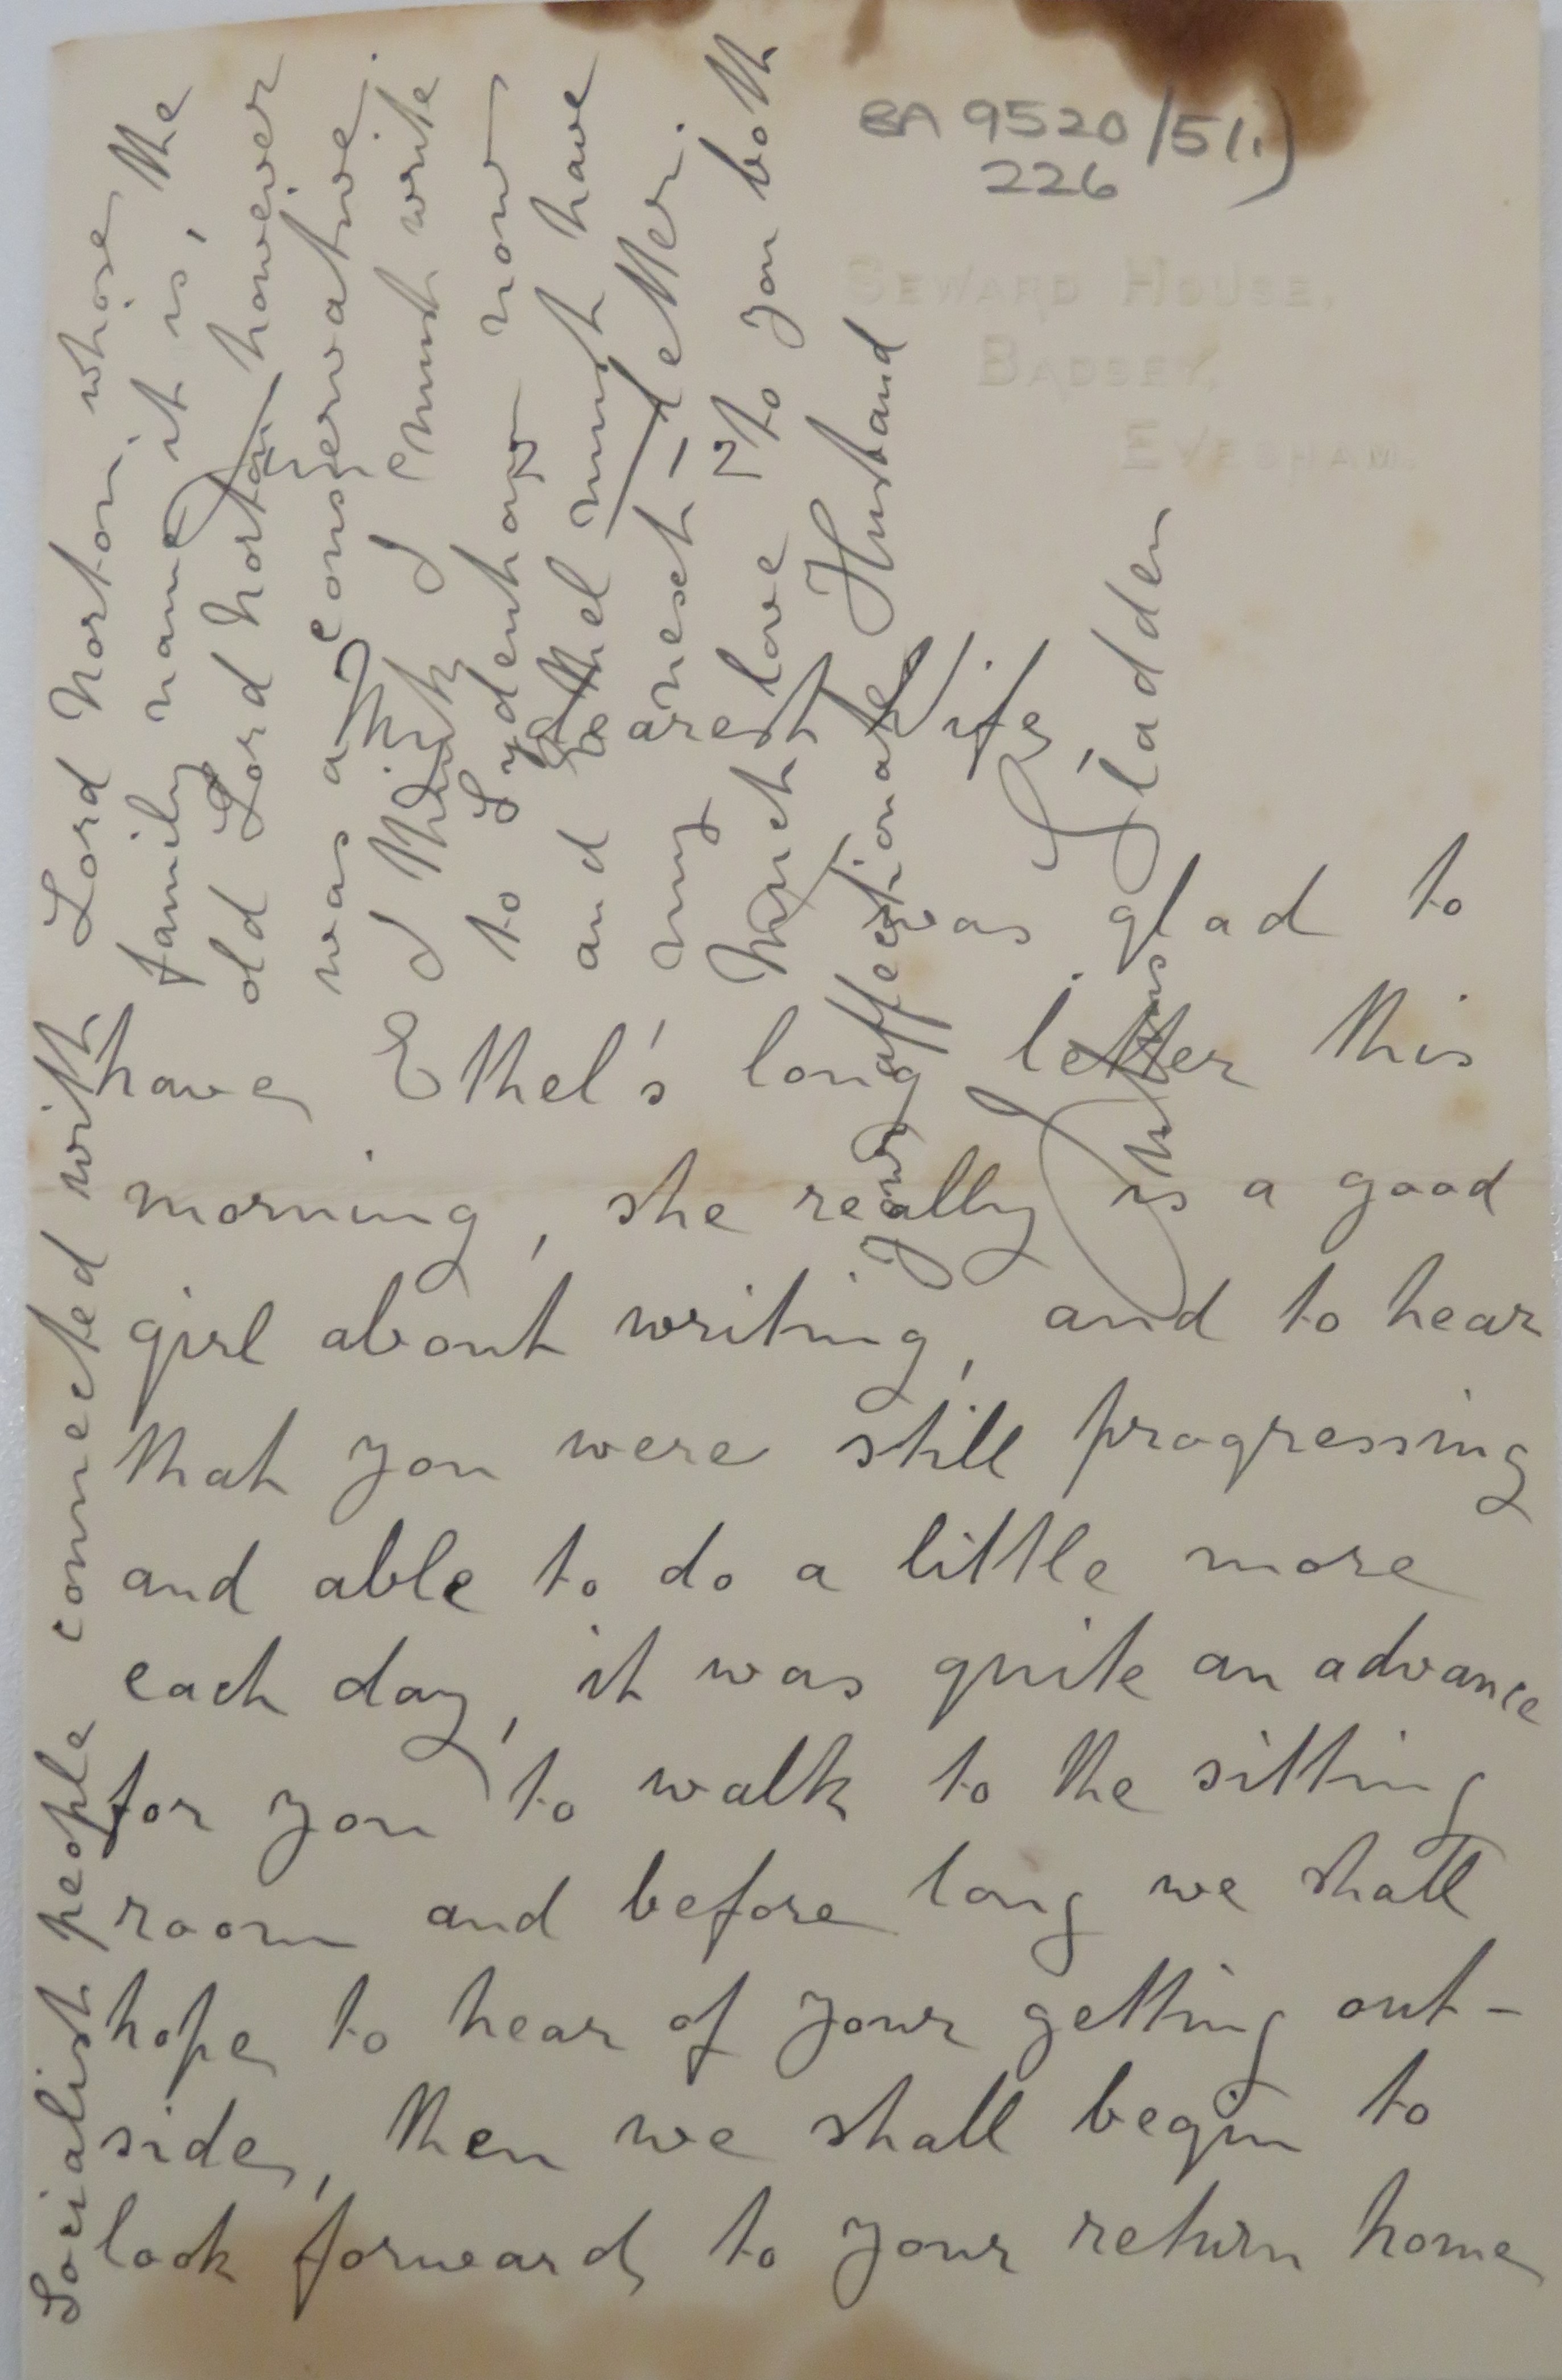 BA 9520/51.)
226
SEWARD HOUSE,
BADSEY,
EVESHAM.
dearest Wife,
was glad to
have Ethel's long letter this
morning, she really is a good
girl about writing, and to hear
that you were still progressing
and able to do a little more
each day, it was quite an advance
for you to walk to the sitting
room and before long we shall
hope to hear of your getting out-
side, then we shall begin to
look forward to your return home
Socialist people connected with Lord Norton whose the
family name it is, the
old Lord Norton however
was a Conservative.
I think I must write
to Sydenham now
and Ethel must have
my next letter.
Much love to you both
your affectionate Husband
Julius Sladden